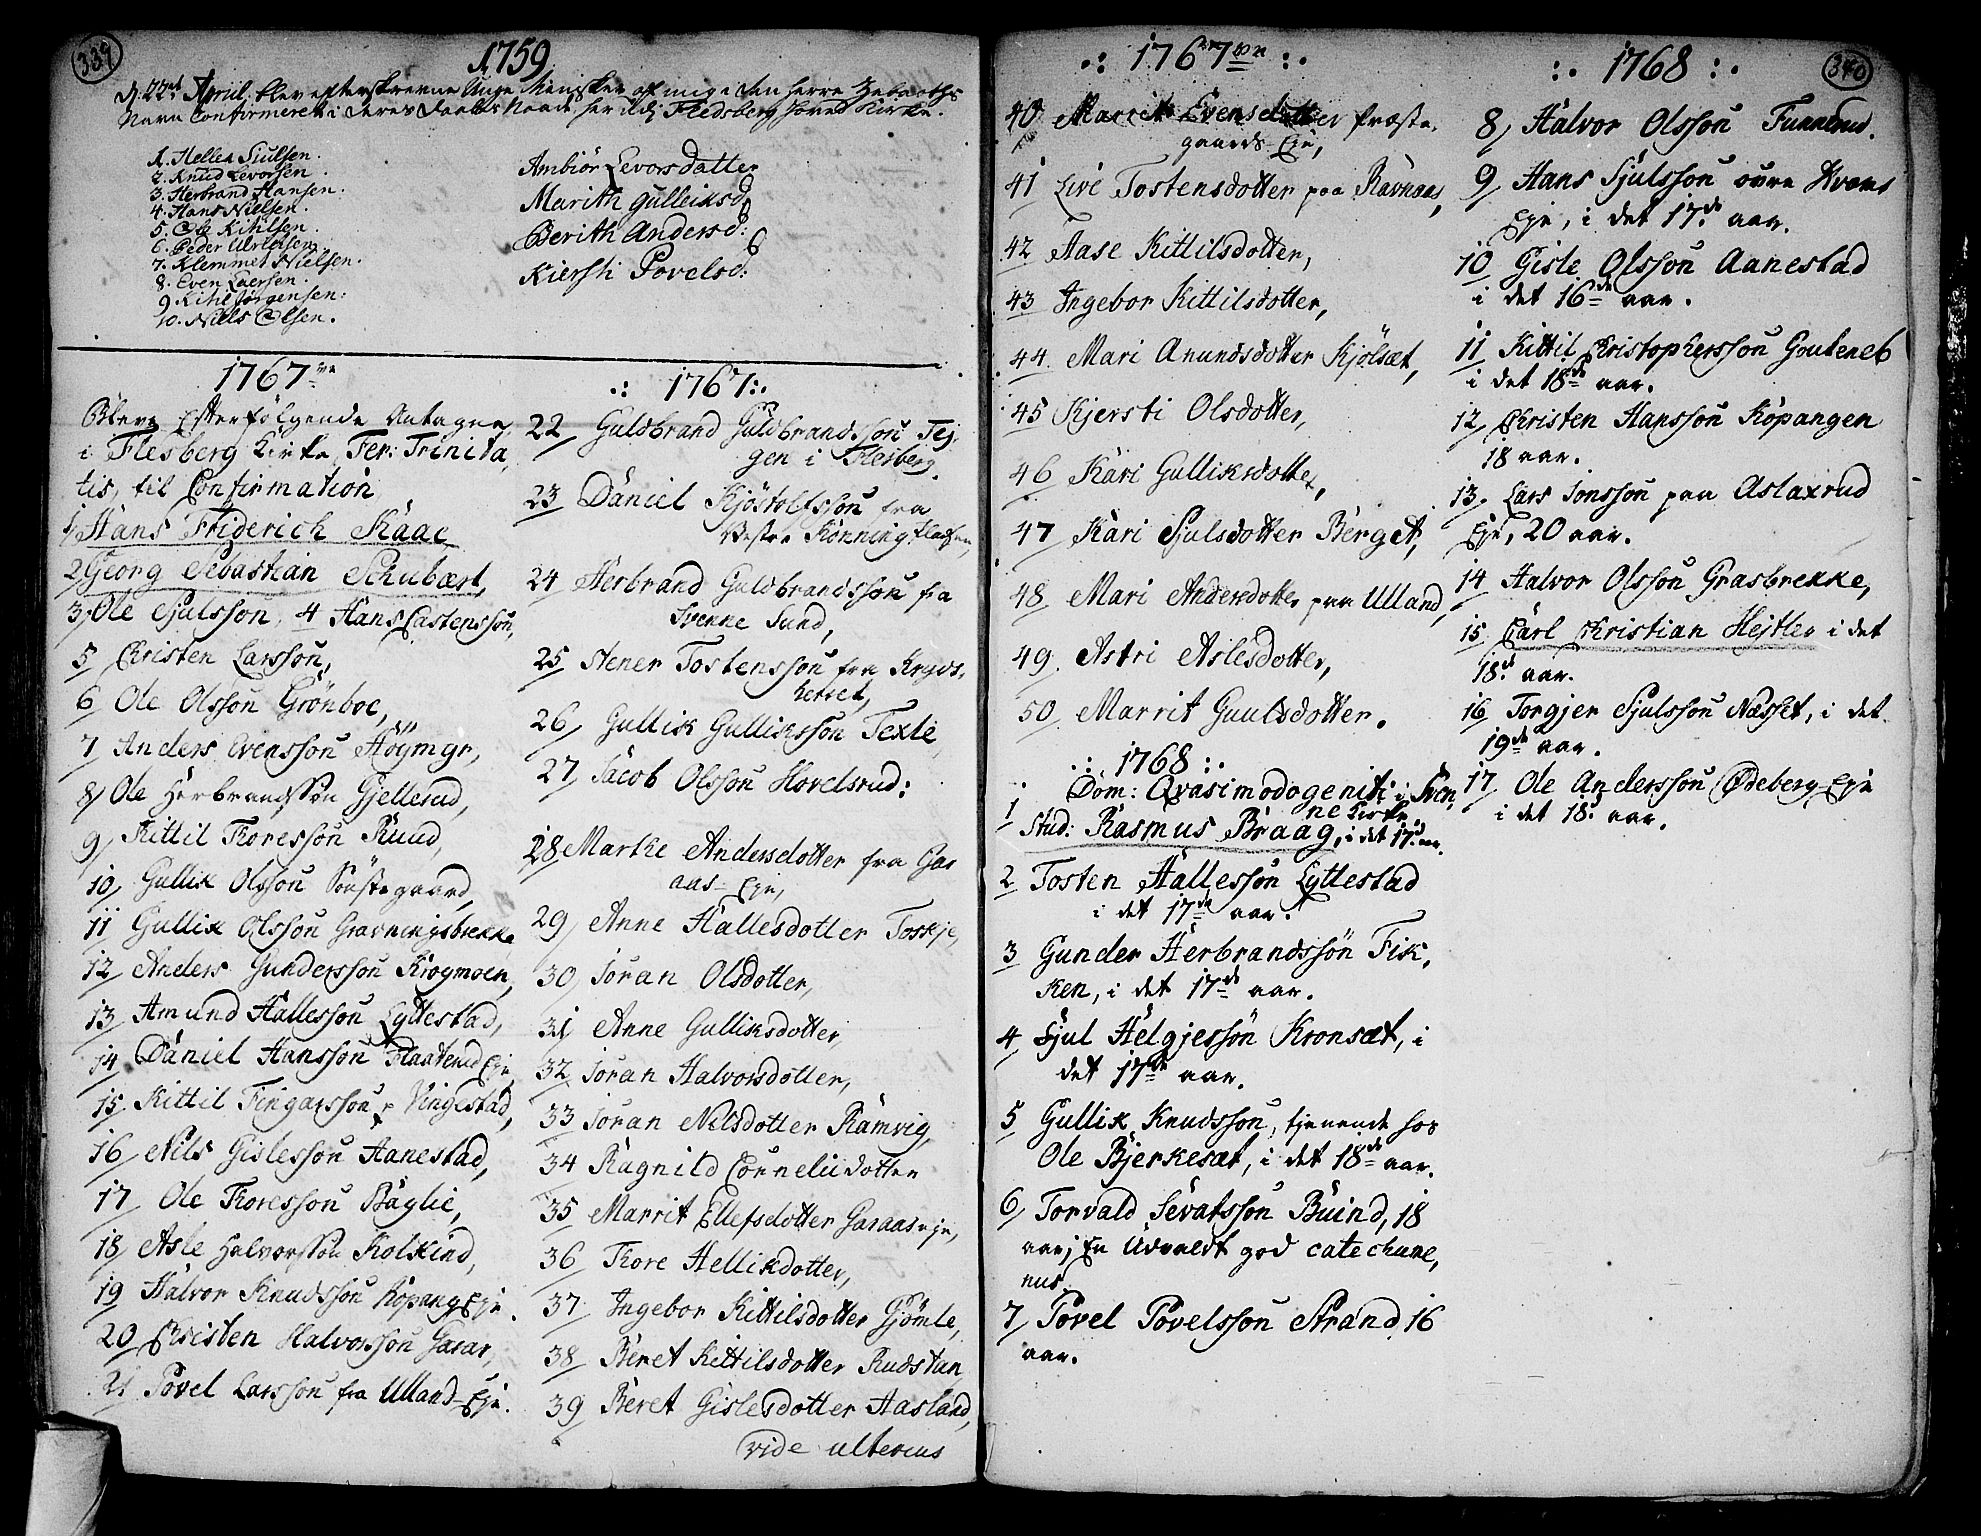 339
1759
d. 22de April blev efterskrevne Unge Menisker af mig i den Herre Zebaoths
Navn Confirmeret i deres Daabs Naade her udj Fledsberg Hoved Kirke.
1. Hellek Siulsen.
2. Knud Levorsen.
3. Herbrand Hansen.
4. Hans Nielsen.
5. Ole Kihlsen.
6. Peder
7. Klemmet Nielsen.
8. Even Laersen.
9. Kihl Jørgensen:
10. Niels Olsen.
Ambiör Levorsdatter
Marith Gulleiksd
Berith Andersd:
Kiersti Povelsd:
1767
Bleve Efterfølgende Antagne,
i Flesberg Kirke Fer: Trinita,
tis, til Confirmation
1, Hans Friderich Kaae
2, Georg Sebastian Schubært,
3, Ole Sjulssøn, 4 Hans Castenssøn,
5 Christen Larssøn,
6 Ole Olssøn Grönboe,
7 Anders Evenssøn Höymyr,
8, Ole Herbrandssøn Gjellerud,
9, Kittil Thoressøn Ruud,
10, Gullik Olssøn Sönstegaard,
11 Gullik Olssøn Gravningsbrekke
12, Anders Gunderssøn Krogmoen,
13, Amund Hallessøn Lyttestad,
14 Daniel Hanssøn Flaaterud Eje,
15, Kittil Fingarssøn Vingestad,
16, Nils Gislessøn Aanestad,
17, Ole Thoressøn Baglie,
18, Asle Halvorssøn Kolkind,
19, Halvor Knudssøn Kopang Eje.
20, Christen Halvorssøn Garar,
21, Povel Larssøn fra Ulland Eje.
.: 1767:.
22, Guldbrand Guldbrandssøn Tej,
gen i Flesberg.
23 Daniel Kjöstolfssøn fra
Vestre Könning
24 Herbrand Guldbrandssøn fra
Svenne Sund,
25, Stener Tostenssøn fra
26, Gullik Gullikssøn Texle,
27, Jacob Olssøn Hovelsrud:
28, Marthe Andersdotter fra Gar
aas- Eje,
29, Anne Hallesdotter Toskje,
30, Joran Olsdotter,
31, Anne Gulliksdotter,
32, Joran Halvorsdotter,
33 Joran Nilsdotter Ramvig,
34 Ragnild Corneliidotter
35, Marrit Ellefsdotter Garaas eje,
36, Thore Hellikdotter,
37, Ingebor Kittilsdotter Gjömle,
38, Beret Kittilsdotter Rudstan,
39, Beret Gislesdotter Aasland,
vide ulterius
340
.: 1767 :.
40, Marrit Evensdotter Præste,
gaards Eje,
41 Live Tostensdotter paa Ravnaas,
42, Aase Kittilsdotter,
43, Ingebor Kittilsdotter,
44. Mari Anundsdotter Kjölsæt,
45, Kjersti Olsdotter,
46 Kari Gulliksdotter,
47 Kari Sjulsdotter Berget,
48, Mari Andersdotter paa Ulland,
49. Astri Aslesdotter,
50, Marrit Guulsdotter.
.: 1768 :.
Dom: Qvasimodogeniti i Sven,
ne Kirke.
1 Stud: Rasmus Braag, i det 17d aar.
2 Tosten Hallessøn Lyttestad
i det 17de aar.
3 Gunder Herbrandssøn Fik,
ken, i det 17de aar.
4, Sjul Helgjessøn Kronsæt, i
det 17de aar.
5 Gullik Knudssøn, tjenende hos
Ole Bjerkesæt, i det 18de aar.
6, Torvald Sevatssøn Buind, 18
aar; En Udvaldt god catechume,
nus.
7, Povel Povelssøn Strand, 16
aar.
:. 1768 :.
8, Halvor Olssøn Tunnerud.
9, Hans Sjulssøn øvre Kvams
Eje, i det 17de aar.
10 Gisle Olssøn Aanestad
i det 16de aar.
11 Kittil Christopherssøn
i det 18de aar.
12, Christen Hanssøn Kopangen
18 aar.
13. Lars Jonssøn paa Aslaxrud
Eje, 20 aar.
14 Halvor Olssøn Grasbrekke,
15 Carl Christian Hejtler i det
18d aar.
16 Torgjer Sjulssøn Næsset, i det
19de aar.
17, Ole Anderssøn Ødeberg Eje
i det 18d aar.